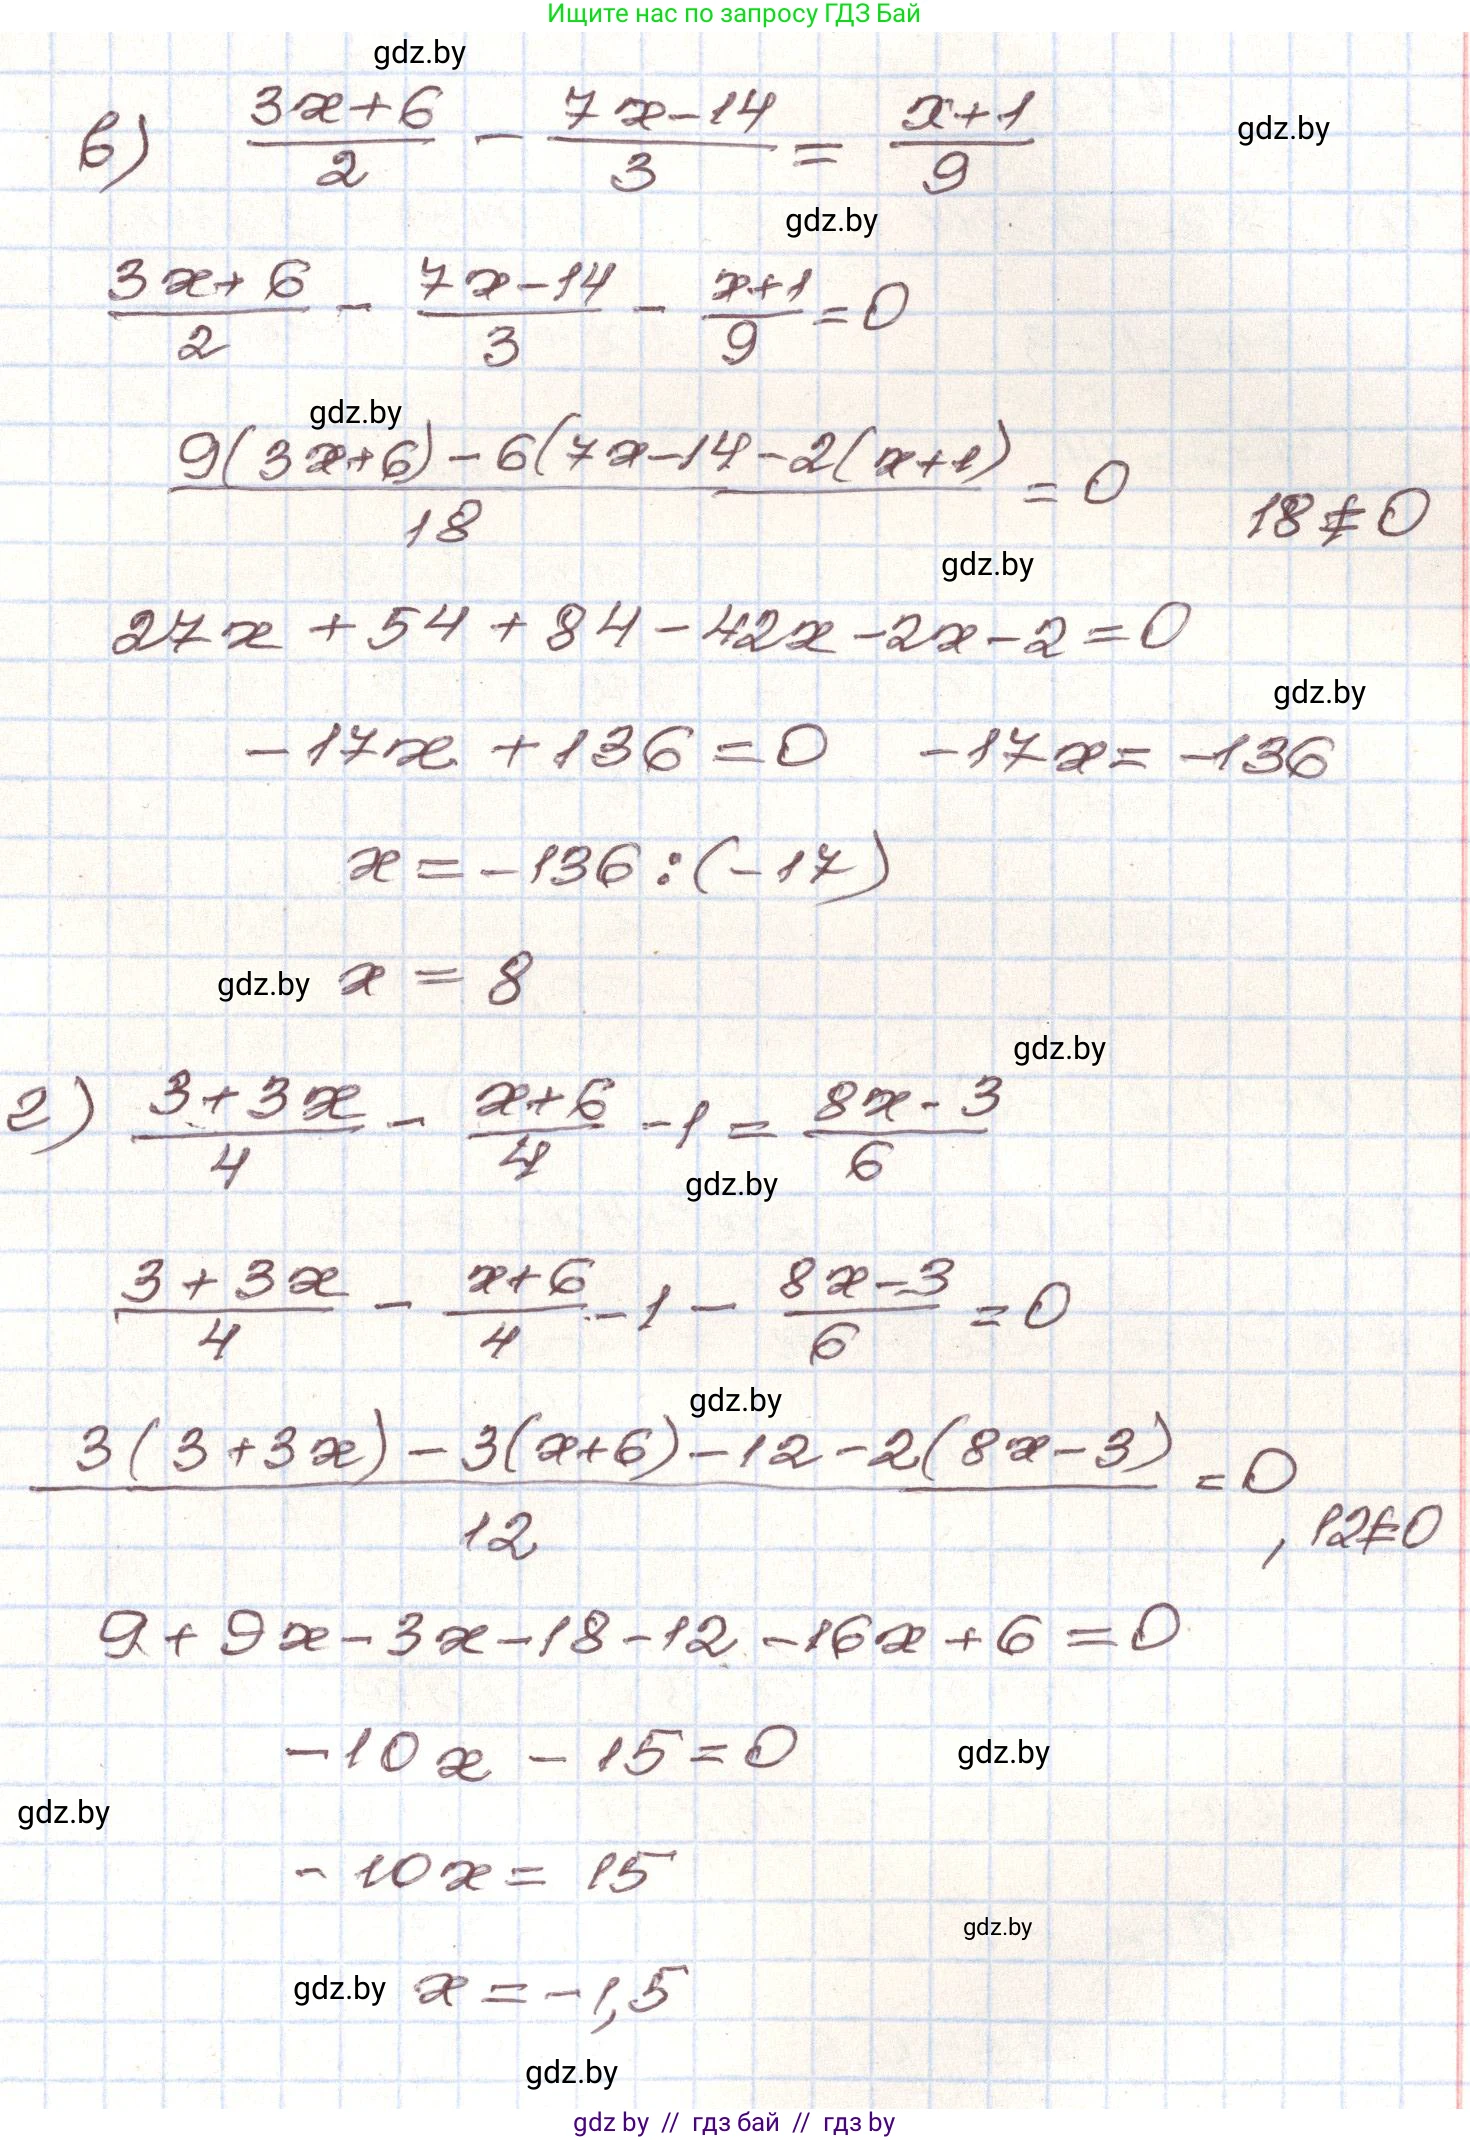 Ищите нас по запросу ГДЗ Бай
gdz.by
в) (3x+6)/2 - (7x-14)/3 = (x+1)/9
gdz.by
gdz.by
(3x+6)/2 - (7x-14)/3 - (x+1)/9 = 0
gdz.by
(9(3x+6)-6(7x-14-2(x+1))/18 = 0 18≠0
gdz.by
27x+54+84-42x-2x-2=0
gdz.by
-17x+136=0 -17x=-136
x=-136:(-17)
gdz.by x=8
gdz.by
г) (3+3x)/4 - (x+6)/4 -1 = (8x-3)/6
gdz.by
(3+3x)/4 - (x+6)/4 -1- (8x-3)/6 = 0
gdz.by
(3(3+3x)-3(x+6)-12-2(8x-3))/12 = 0, 12≠0
9+9x-3x-18-12-16x+6=0
-10x-15=0
gdz.by
gdz.by
-10x=15
gdz.by
gdz.by x=-1,5
gdz.by
gdz by // гдз бай // гдз by